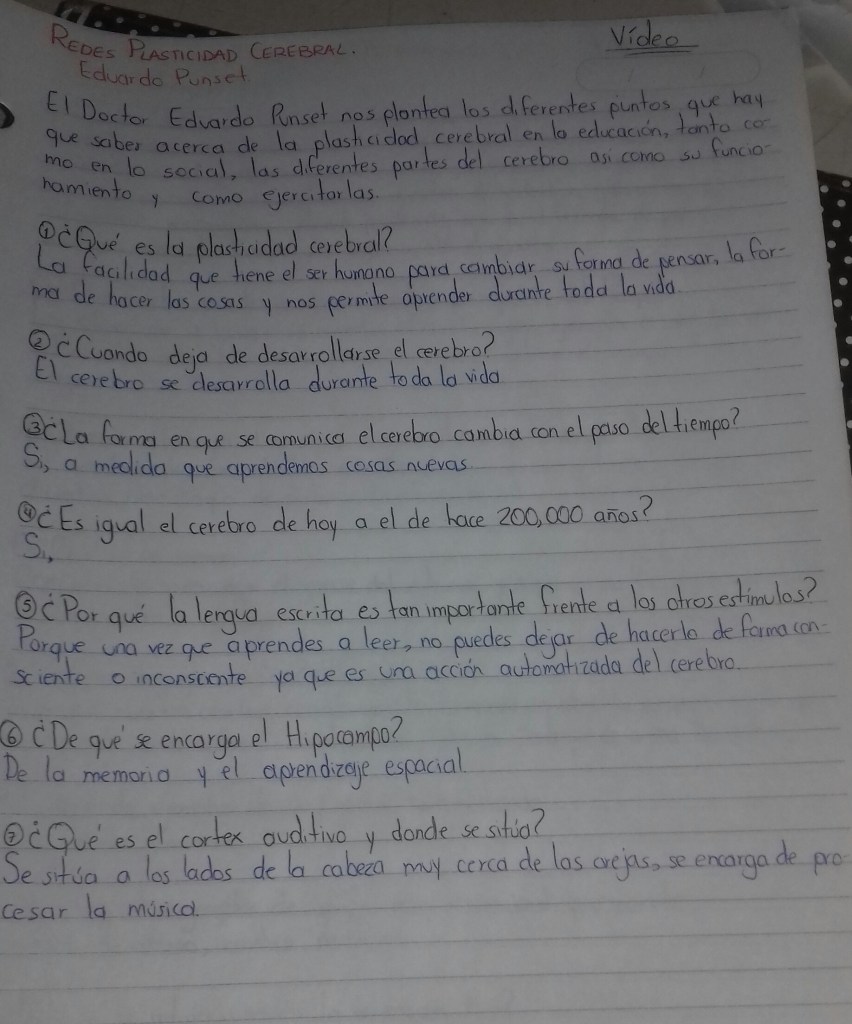 REDES PLASTICIDAD CEREBRAL.
Vídeo
Eduardo Punset
El Doctor Eduardo Punset nos plantea los diferentes puntos que hay
que saber acerca de la plasticidad cerebral en la educación, tanto co-
mo en lo social, las diferentes partes del cerebro asi como su funcio-
namiento y como ejercitarlas.
① ¿Qué es la plasticidad cerebral?
La facilidad que tiene el ser humano para cambiar su forma de pensar, la for-
ma de hacer las cosas y nos permite aprender durante toda la vida.
② ¿Cuando deja de desarrollarse el cerebro?
El cerebro se desarrolla durante toda la vida
③ ¿La forma en que se comunica el cerebro cambia con el paso del tiempo?
Si, a medida que aprendemos cosas nuevas.
④ ¿Es igual el cerebro de hoy a el de hace 200,000 años?
Si,
⑤ ¿Por qué la lengua escrita es tan importante frente a los otros estimulos?
Porque una vez que aprendes a leer, no puedes dejar de hacerlo de forma con-
sciente o inconsciente ya que es una acción automatizada del cerebro.
⑥ ¿De qué se encarga el Hipocampo?
De la memoria y el aprendizaje espacial.
⑦ ¿Qué es el cortex auditivo y donde se sitúa?
Se sitúa a los lados de la cabeza muy cerca de las orejas, se encarga de pro-
cesar la música.